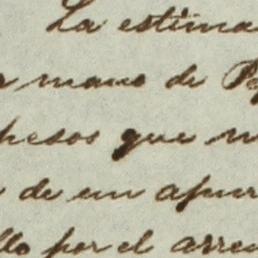 La estima
mano de
pesos que
de un apur
llo por el arren